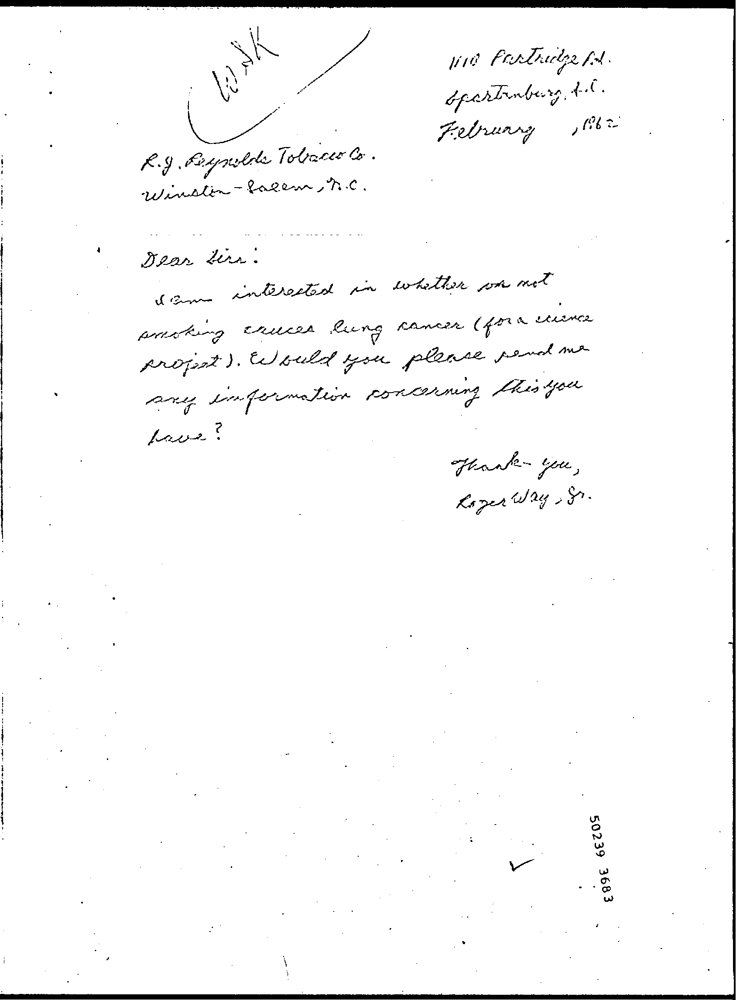 WSK
1110 Partridge Rd.
Spartanburg, S.C.
February , 1962
R.J. Reynolds Tobacco Co.
Winston-Salem, N.C.
Dear Sirs:
I am interested in whether or not
smoking causes lung cancer (for a science
project). Would you please send me
any information concerning this you
have?
Thank-you,
Roger Way, Jr.
50239 3683